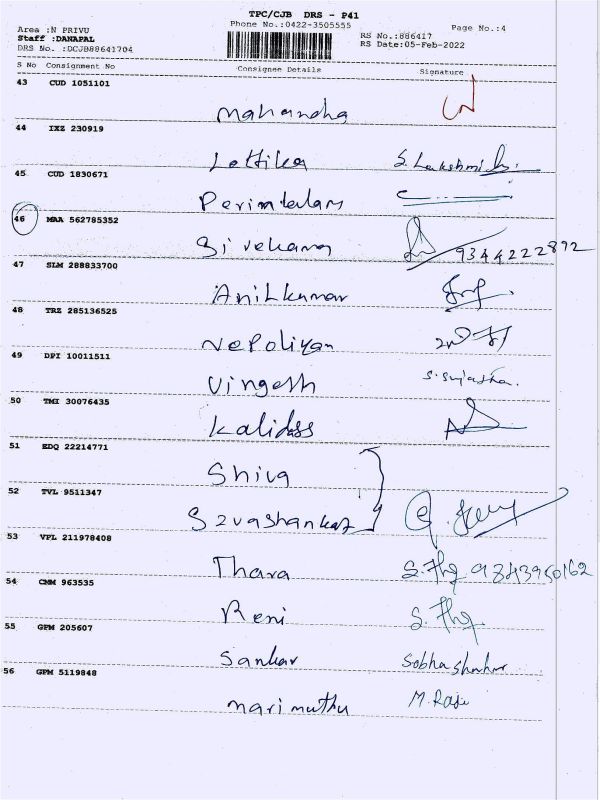 TPC/CJB DRS - P41
Area :N PRIVU Phone No.:0422-3505555 Page No.:4
Staff :DANAPAL RS No.:886417
DRS No. :DCJB88641704 RS Date:05-Feb-2022
S No Consignment No Consignee Details Signature
43 CUD 1051101
Mahandha
44 IXZ 230919
Lattika S. Lakshmi
45 CUD 1830671
46 MAA 562785352
9344222892
47 SLM 288833700
Anilkumar
48 TRZ 285136525
Nepoliyan
49 DPI 10011511
Vingesh S. Sujatha.
50 TMI 30076435
Kalidass
51 EDQ 22214771
Shiva
52 TVL 9511347
Sivashankar
53 VPL 211978408
Thara 9843950162
54 CMM 963535
Reni
55 GPM 205607
Sankar Sobhashankar
56 GPM 5119848
marimuthu M. Raji